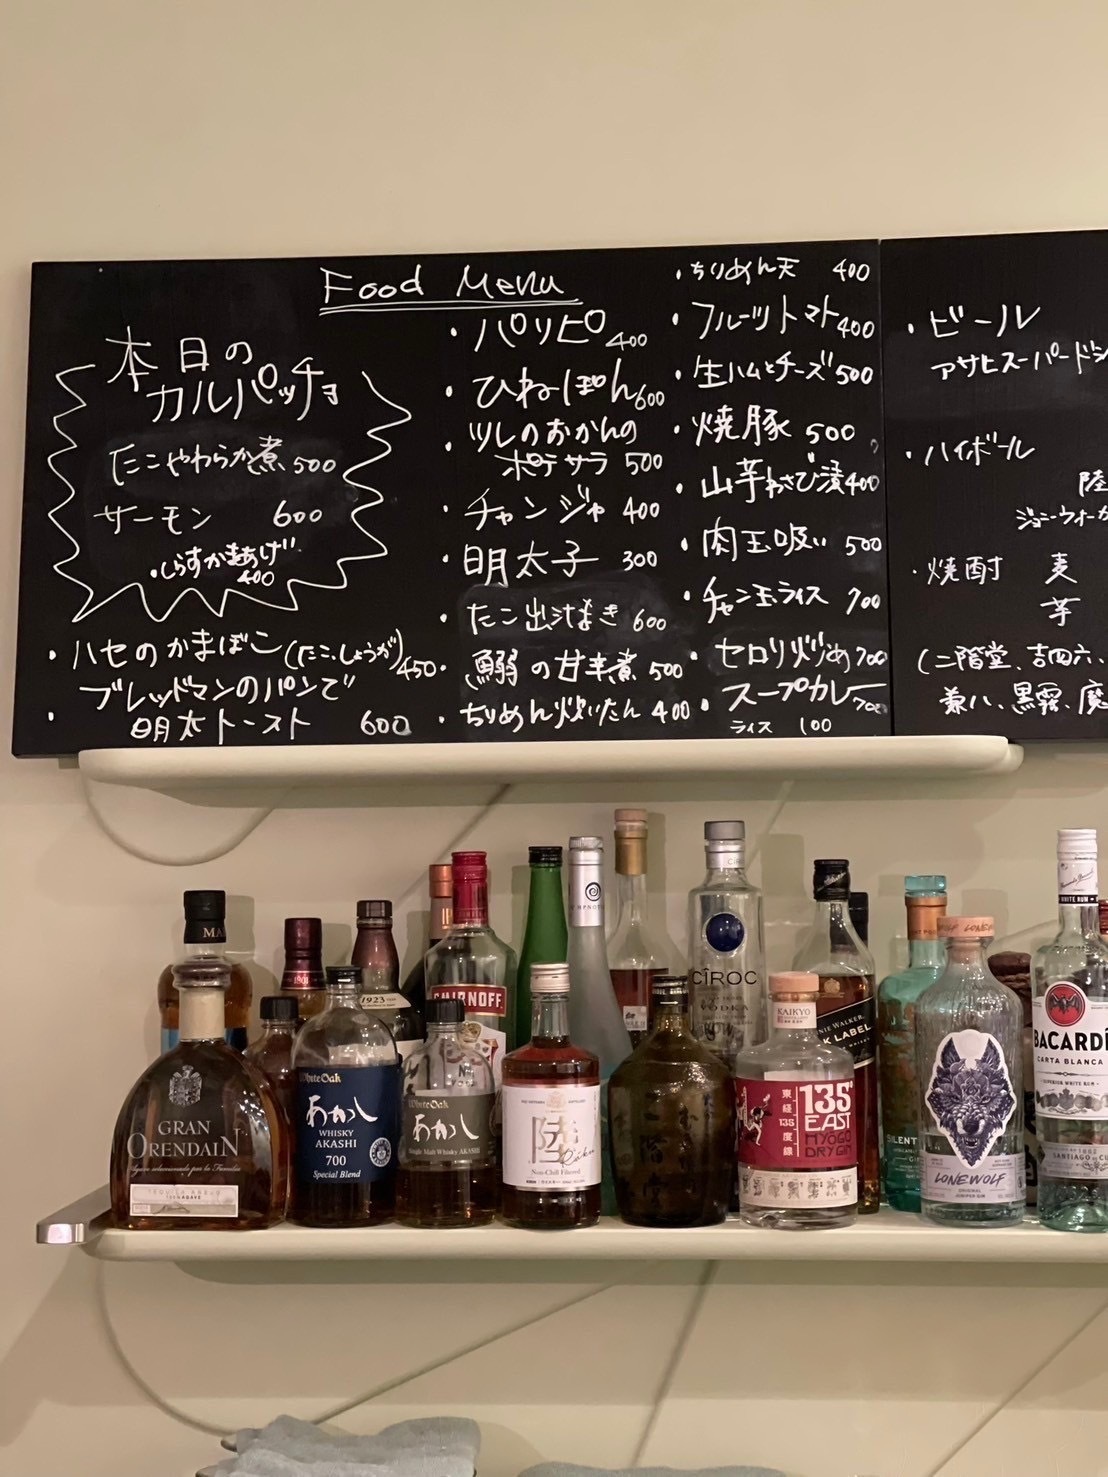 Food Menu
本日の
カルパッチョ
たこやわらか煮 500
サーモン 600
・しらすかきあげ
400
・ハセのかまぼこ(たこ、しょうが) 450
・ブレッドマンのパンで
明太トースト 600
・パリピ 400
・ひねぽん 600
・ツレのおかんの
ポテサラ 500
・チャンジャ 400
・明太子 300
・たこ出汁まき 600
・鰯の甘辛煮 500
・ちりめん炊いたん 400
・ちりめん天 400
・フルーツトマト 400
・生ハムとチーズ 500
・焼豚 500
・山芋わさび漬 400
・肉玉吸い 500
・チャン玉ライス 700
・セロリ炒め 700
・スープカレー 700
ライス 100
・ビール
アサヒスーパードラ
・ハイボール
陸
ジョニーウォーカ
・焼酎 麦
芋
(二階堂、吉四六、
兼八、黒霧、魔
MA
1901
1923
SMIRNOFF
CÎROC
VODKA
CK LABEL
KAIKYO
GRAN
ORENDAIN
White Oak
あかし
WHISKY
AKASHI
700
Special Blend
White Oak
あかし
Single Malt Whisky AKASHI
陸
Non-Chill Filtered
東経135度線
135°
EAST
HYOGO
DRY GIN
SILENT
LONE WOLF
LONEWOLF
ORIGINAL
JUNIPER GIN
WHITE RUM
BACARDÍ
CARTA BLANCA
SUPERIOR WHITE RUM
1862
SANTIAGO DE CU